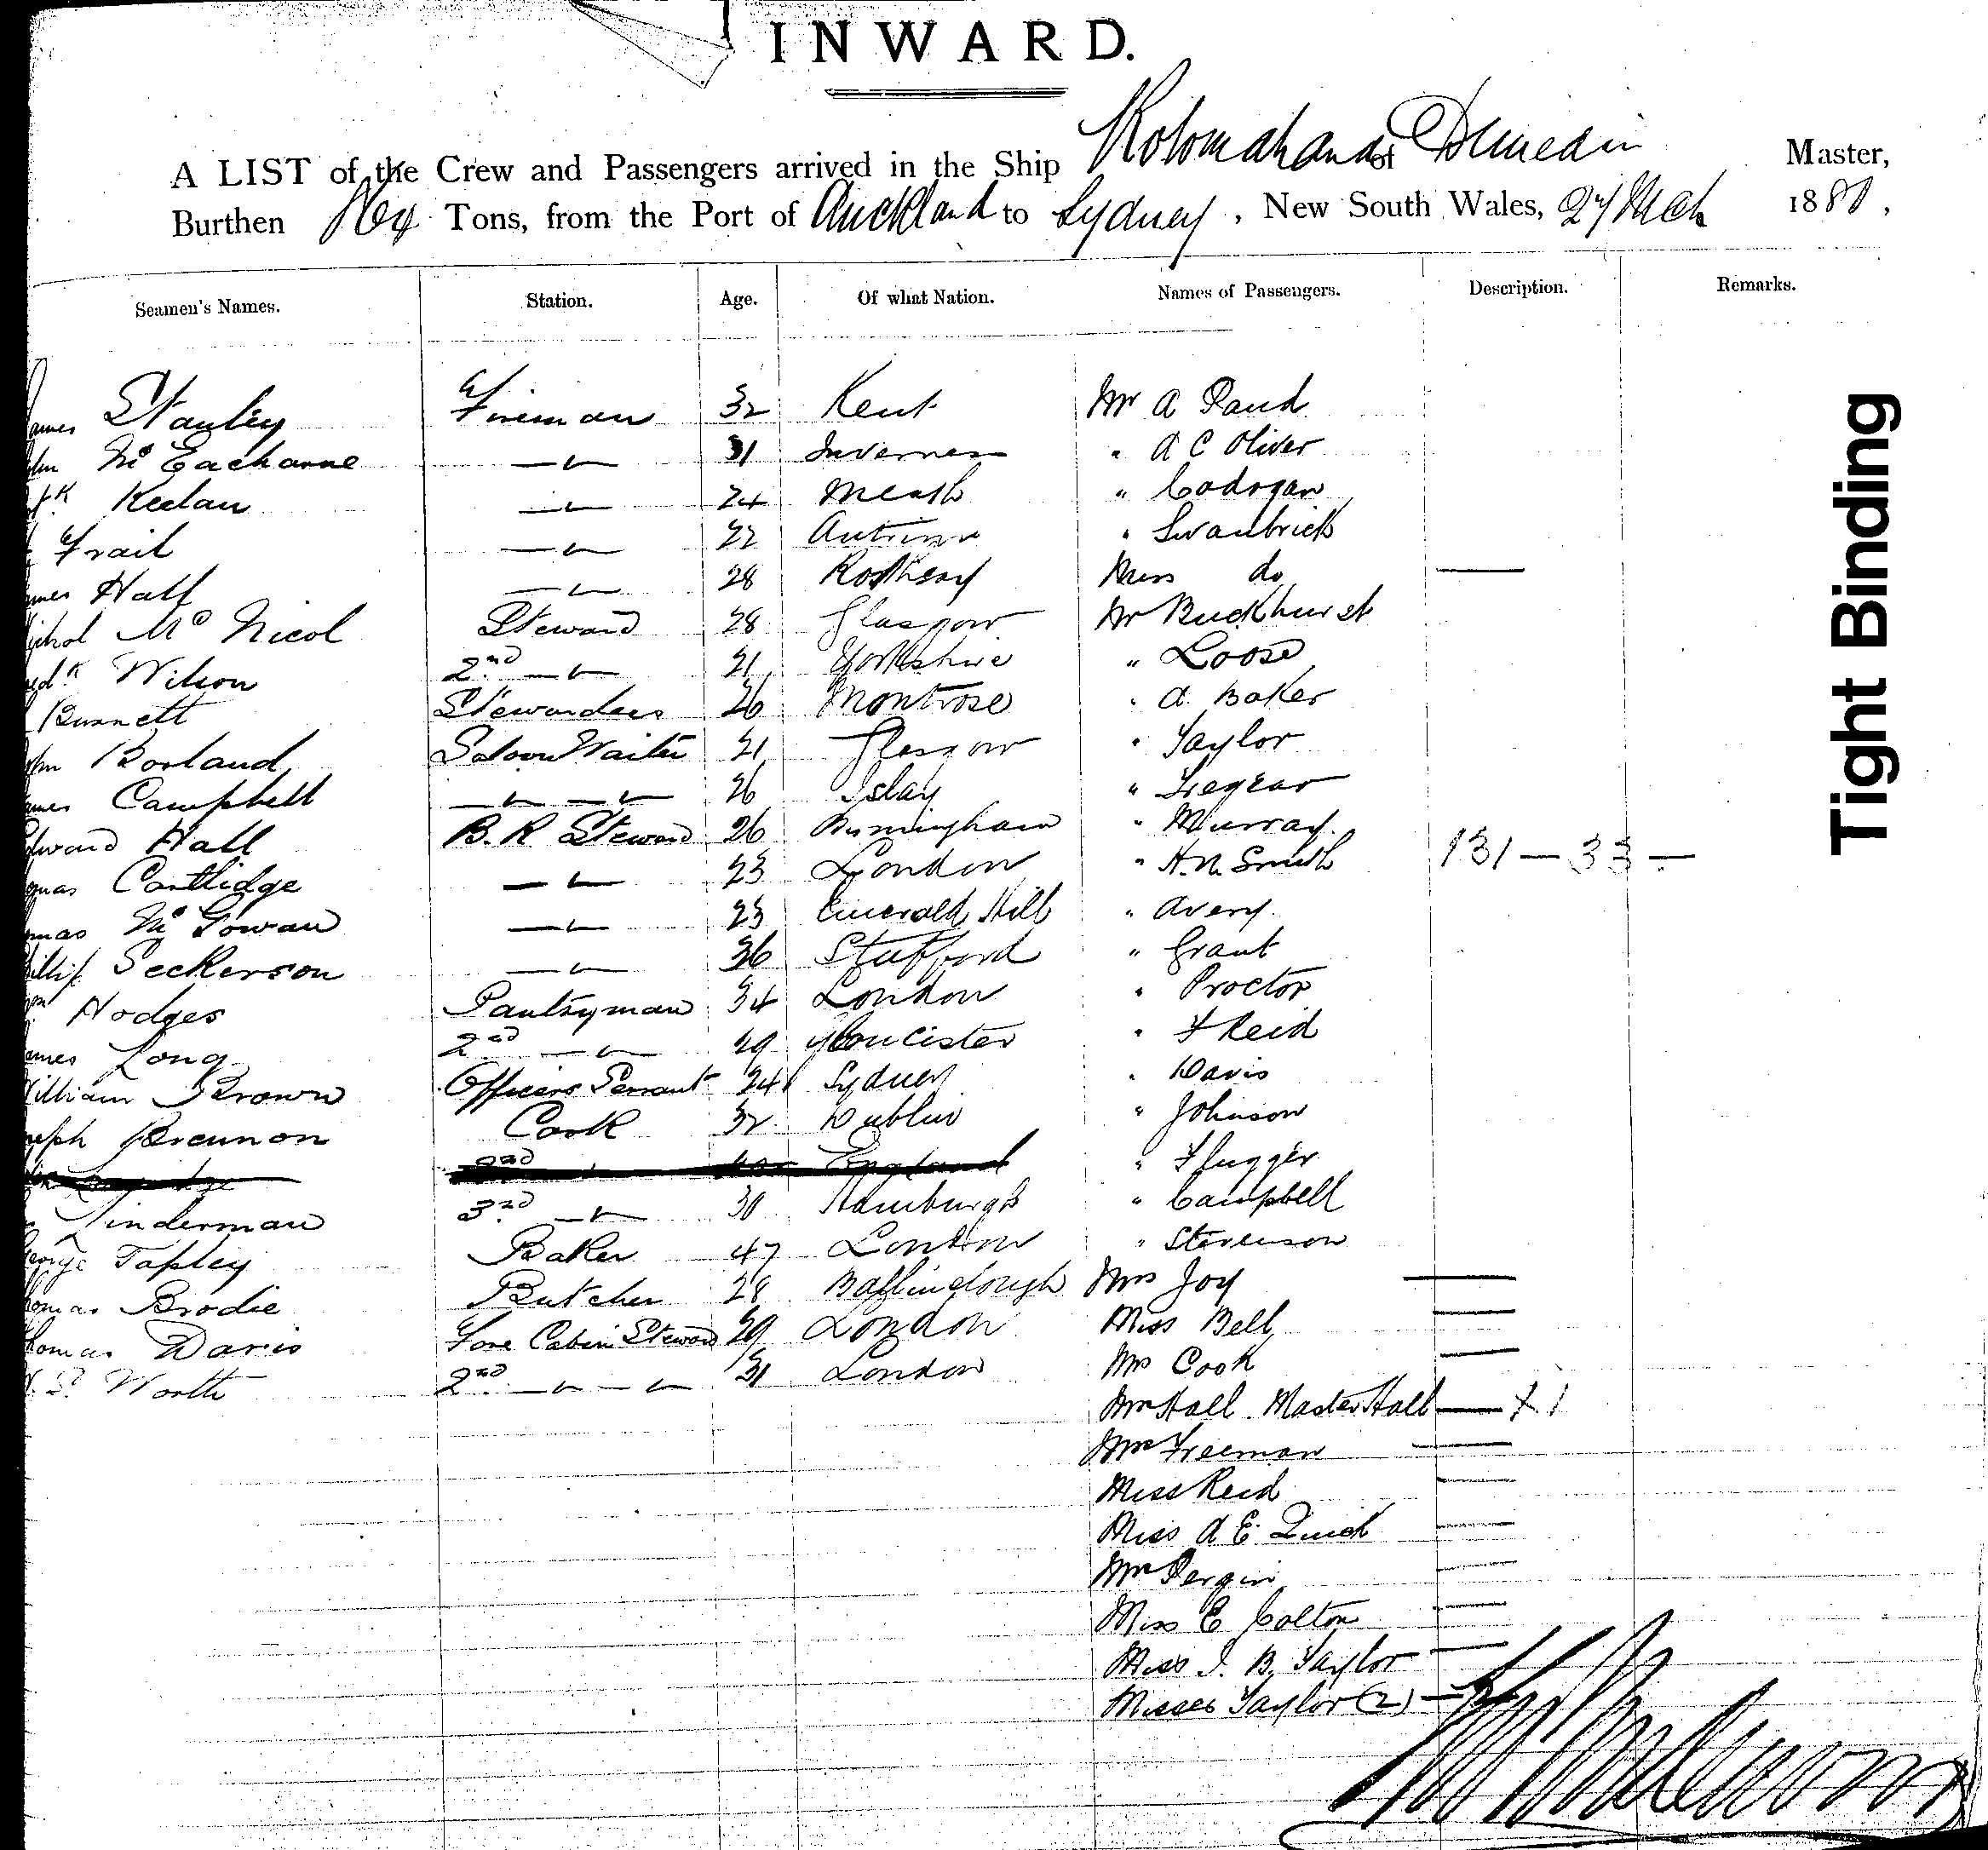 INWARD.
A LIST of the Crew and Passengers arrived in the Ship Rotomahana of Dunedin Master,
Burthen Tons, from the Port of Auckland to Sydney, New South Wales, 27 Mch 1880,
Seamen's Names. Station. Age. Of what Nation. Names of Passengers. Description. Remarks.
ames Stanley Fireman 32 Kent Mr A Rand
ohn McEacharne —〃— 31 Inverness " A C Oliver
Keelan —〃— 24 Meath " Cadogan
Frail —〃— 22 Antrim " Swanbrick
ames Hall —〃— 28 Rothsay Miss do —
ichol McNicol Steward 28 Glasgow Mr Buckhurst
Wilson 2nd —〃— 21 Yorkshire " Loose
Burnett Stewardess 26 Montrose " A. Baker
ohn Borland Saloon Waiter 21 Glasgow " Taylor
ames Campbell —〃—〃 26 Islay " Tregear
dward Hall B.R Steward 26 Birmingham " Murray
omas Cartlidge —〃— 23 London " H.N. Smith 131 — 33 —
omas McGowan —〃— 23 Emerald Hill " Avery
illip Seckerson —〃— 36 Stafford " Grant
Hodges Pantryman 34 London " Proctor
ames Long 2nd —〃— 29 Gloucister " F Reid
illiam Brown Officers Servant 24 Sydney " Davis
oseph Brennon Cook 32 Dublin " Johnson
2nd England " Flugger
Linderman 3rd —〃— 30 Hamburgh " Campbell
eorge Tapley Baker 47 London " Stevenson
homas Brodie Butcher 28 Mrs Joy —
homas Davis Fore Cabin Steward 29 London Miss Bell —
Worth 2nd —〃—〃 31 London Mrs Cook —
Mrs Hall Master Hall — + 1
Mrs Freeman —
Miss Reid —
Miss A E Quick —
Mrs Pergin —
Miss E Colton —
Miss I. B. Taylor —
Misses Taylor (2) —
Tight Binding